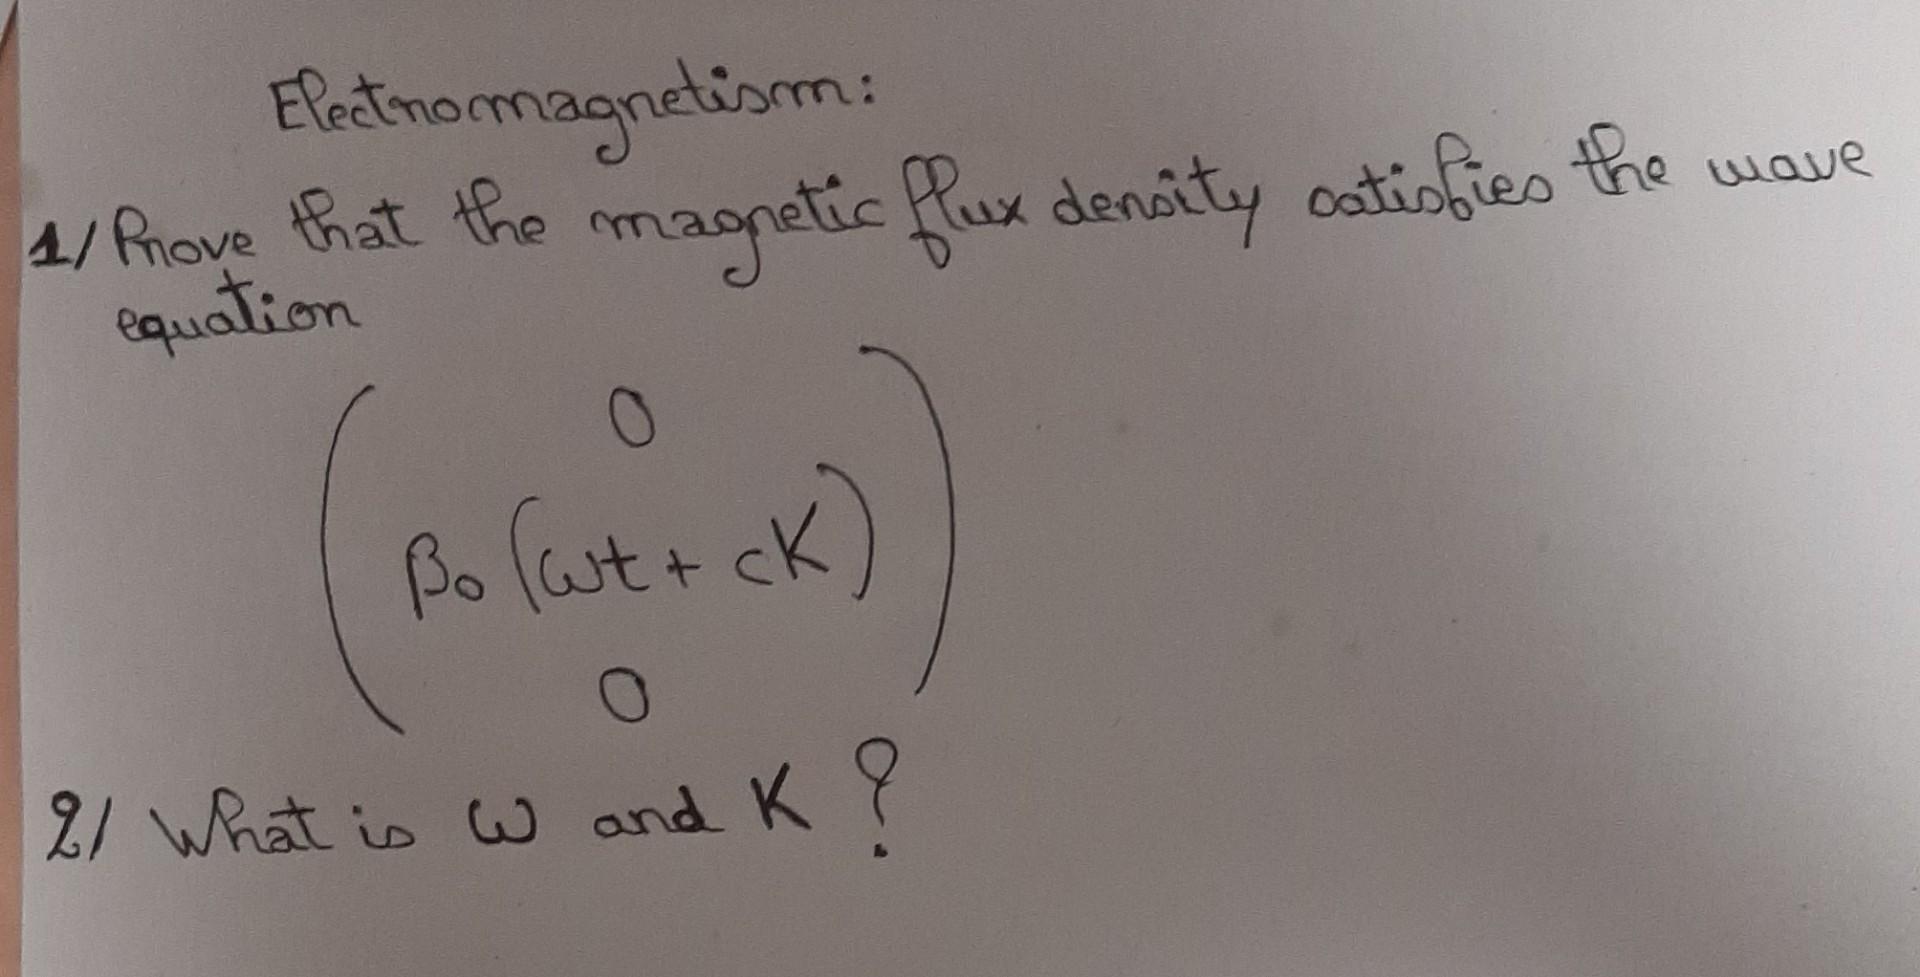 Electromagnetism:
1/ Prove that the magnetic flux density satisfies the wave
equation
0
β₀ (ωt + cK)
0
2/ What is ω and K ?